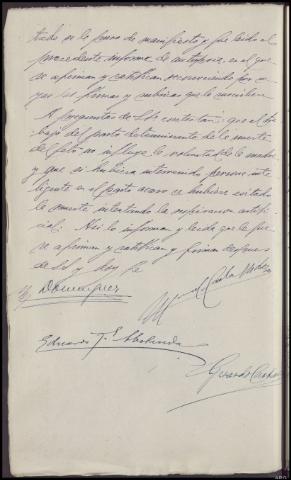 tado se le puso de manifiesto y fue leido el
precedente informe de autopsia, en el que
se afirman y ratifican reconociendo por su-
yas las firmas y rubricas que lo suscriben
A preguntas de S.S. contestan: que al tra-
bajo del parto determinante de la muerte
del feto no influyó la voluntad de la madre
y que si hubiera intervenido persona inte-
ligente en el parto acaso se hubiera evitado
la muerte intentando la respiracion artifi-
cial. Asi lo informan y leido que le fue
se afirman y ratifican y firman despues
de S.S. y doy fe
Dominguez
Eduardo
Gerardo